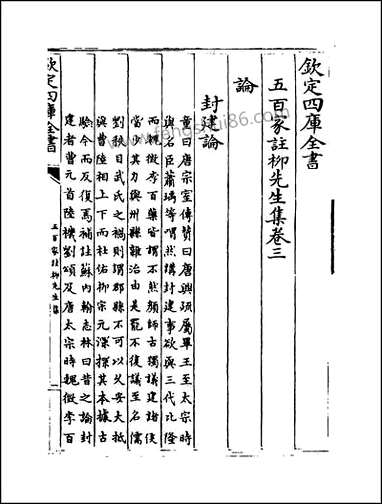 欽定四庫全書
五百家註柳先生集卷三
論
封建論
童曰唐宗室傳贊曰唐興疏屬畢王至太宗時
與名臣蕭瑀等喟然講封建事欲與三代比隆
而魏徵李百藥皆謂不然顔師古獨議建諸侯
當少其力與州縣雜治由是罷不復議至名儒
劉秩目武氏之禍則謂郡縣不可以久安大抵
與曹陸相上下而杜佑柳宗元深探其本據古
驗今而反復焉補註蘇内翰志林曰昔之論封
建者曹元首陸機劉頌及唐太宗時魏徵李百
欽定四庫全書
五百家註柳先生集
一